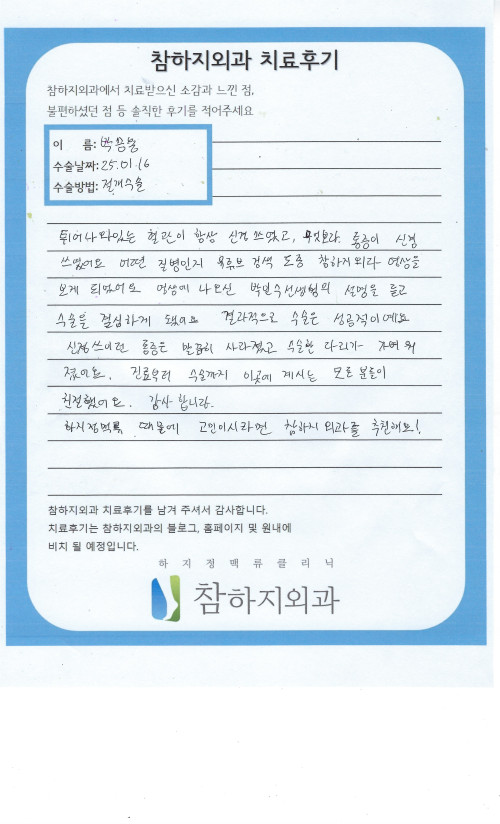 참하지외과 치료후기
참하지외과에서 치료받으신 소감과 느낀 점,
불편하셨던 점 등 솔직한 후기를 적어주세요
이 름:
수술날짜: 25.01.16
수술방법: 절개수술
튀어나와있는 혈관이 항상 신경 쓰였고, 무엇보다 통증이 신경
쓰였어요 어떤 질병인지 유튜브 검색 도중 참하지외과 영상을
보게 되었어요 영상에 나오신 선생님의 설명을 듣고
수술을 결심하게 됐어요 결과적으로 수술은 성공적이예요
신경쓰이던 통증은 말끔히 사라졌고 수술한 다리가 가벼워
졌어요. 진료부터 수술까지 이곳에 계시는 모든 분들이
친절했어요. 감사합니다.
하지정맥류 때문에 고민이시라면 참하지외과를 추천해요!
참하지외과 치료후기를 남겨 주셔서 감사합니다.
치료후기는 참하지외과의 블로그, 홈페이지 및 원내에
비치 될 예정입니다.
하지정맥류클리닉
참하지외과